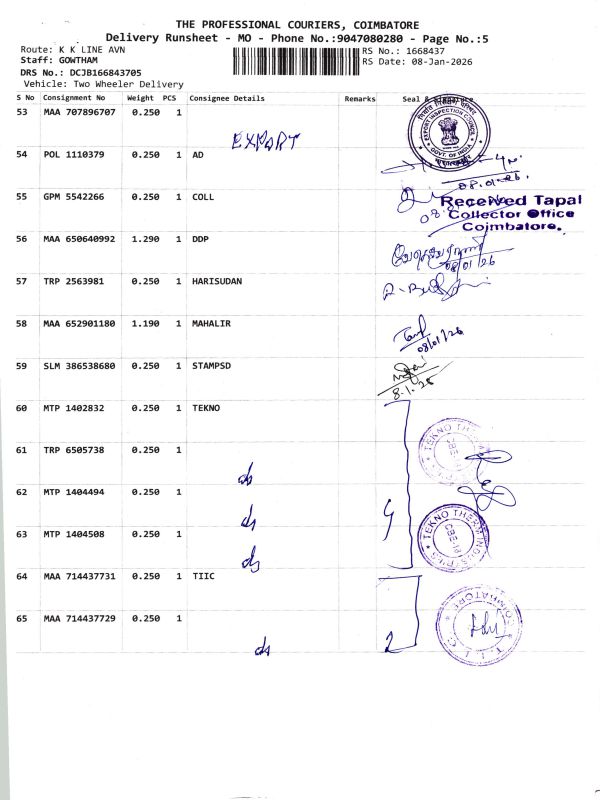 THE PROFESSIONAL COURIERS, COIMBATORE
Delivery Runsheet - MO - Phone No.:9047080280 - Page No.:5
Route: K K LINE AVN
RS No.: 1668437
Staff: GOWTHAM
RS Date: 08-Jan-2026
DRS No.: DCJB166843705
Vehicle: Two Wheeler Delivery
S No Consignment No Weight PCS Consignee Details Remarks Seal &
53 MAA 707896707 0.250 1
EXPORT
EXPORT INSPECTION COUNCIL
GOVT. OF INDIA
54 POL 1110379 0.250 1 AD
08.01.26.
55 GPM 5542266 0.250 1 COLL
Received Tapal
Collector Office
Coimbatore.
56 MAA 650640992 1.290 1 DDP
08/01/26
57 TRP 2563981 0.250 1 HARISUDAN
58 MAA 652901180 1.190 1 MAHALIR
08/01/26
59 SLM 386538680 0.250 1 STAMPSD
8.1.26
60 MTP 1402832 0.250 1 TEKNO
61 TRP 6505738 0.250 1
do
TEKNO THERM
CBE-19
62 MTP 1404494 0.250 1
do
4
63 MTP 1404508 0.250 1
do
TEKNO THERM INDUSTRIES
CBE-19
64 MAA 714437731 0.250 1 TIIC
65 MAA 714437729 0.250 1
do
2
COIMBATORE
T.I.I.C